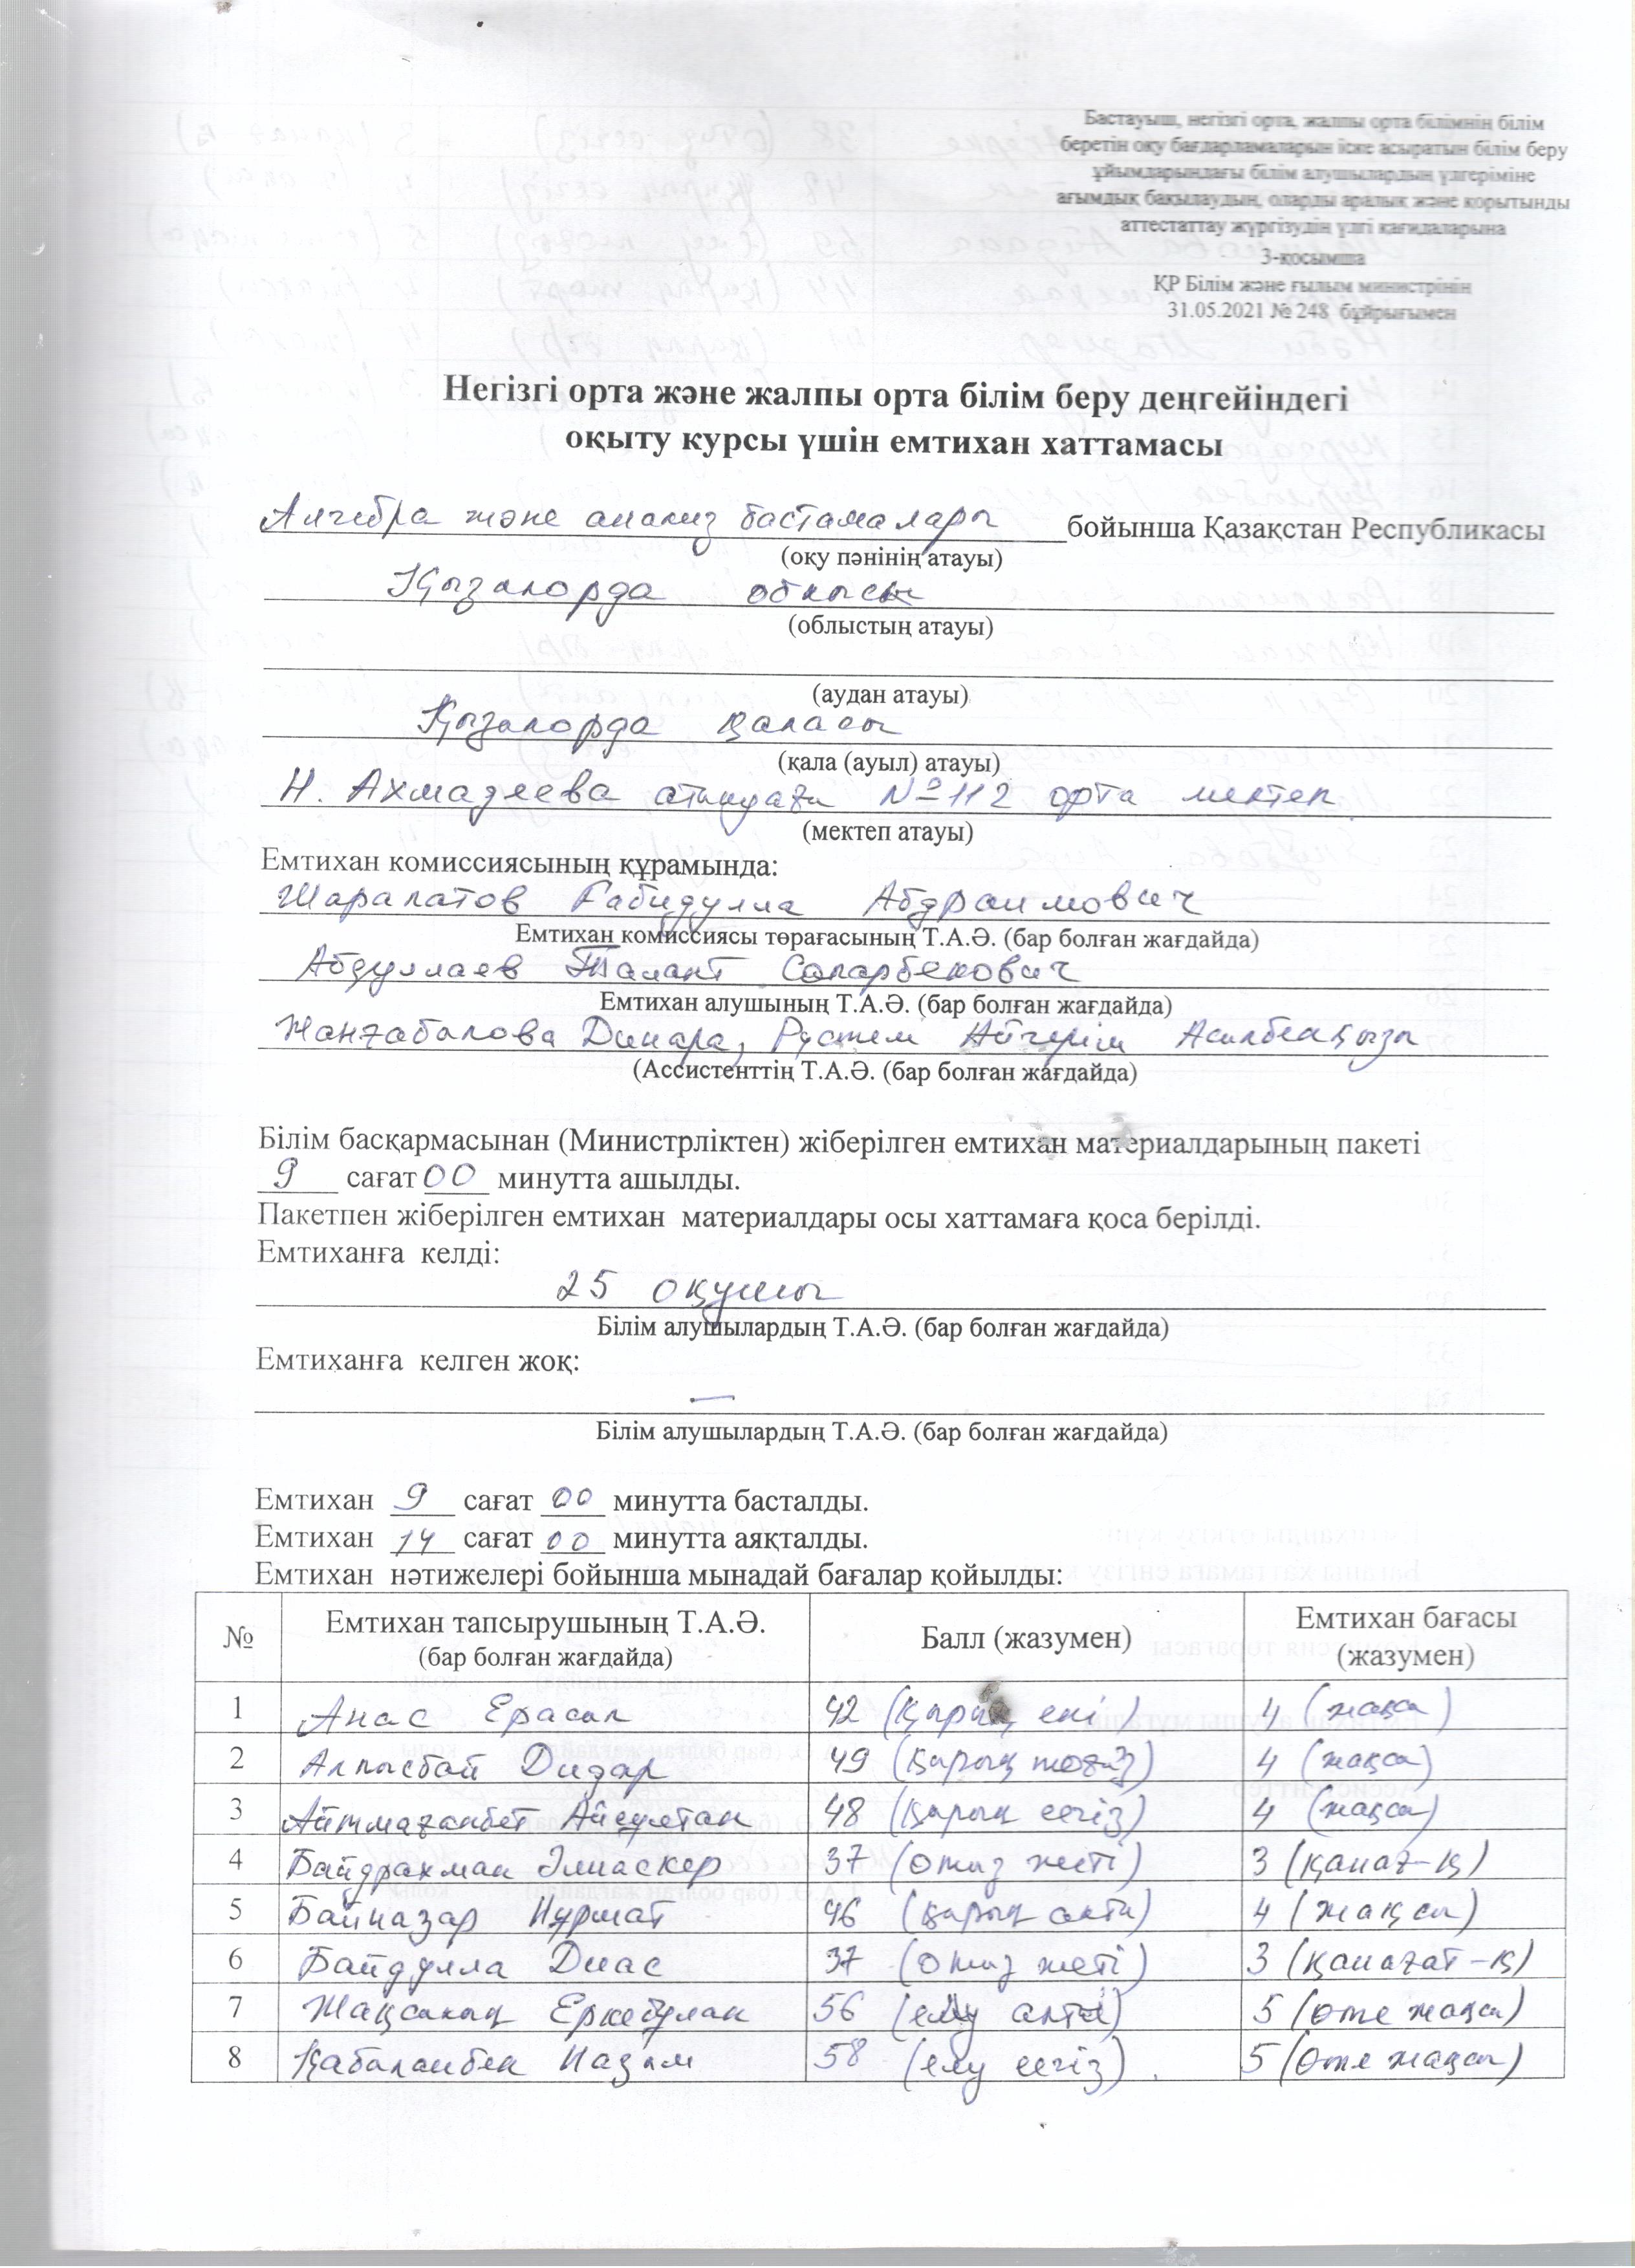 Бастауыш, негізгі орта, жалпы орта білімнің білім
беретін оқу бағдарламаларын іске асыратын білім беру
ұйымдарындағы білім алушылардың үлгеріміне
ағымдық бақылаудың, оларды аралық және қорытынды
аттестаттау жүргізудің үлгі қағидаларына
3-қосымша
ҚР Білім және ғылым министрінің
31.05.2021 № 248 бұйрығымен
Негізгі орта және жалпы орта білім беру деңгейіндегі
оқыту курсы үшін емтихан хаттамасы
Алгебра және анализ бастамалары бойынша Қазақстан Республикасы
(оқу пәнінің атауы)
Қызылорда облысы
(облыстың атауы)
(аудан атауы)
Қызылорда қаласы
(қала (ауыл) атауы)
Н. Ахмадеева атындағы №112 орта мектеп
(мектеп атауы)
Емтихан комиссиясының құрамында:
Шарапатов Ғабидулла Абдраимович
Емтихан комиссиясы төрағасының Т.А.Ә. (бар болған жағдайда)
Абдуллаев Талант Сапарбекович
Емтихан алушының Т.А.Ә. (бар болған жағдайда)
Жанғабалова Динара, Рүстем Айгерім Асылбекқызы
(Ассистенттің Т.А.Ә. (бар болған жағдайда)
Білім басқармасынан (Министрліктен) жіберілген емтихан материалдарының пакеті
9 сағат 00 минутта ашылды.
Пакетпен жіберілген емтихан материалдары осы хаттамаға қоса берілді.
Емтиханға келді:
25 оқушы
Білім алушылардың Т.А.Ә. (бар болған жағдайда)
Емтиханға келген жоқ:
—
Білім алушылардың Т.А.Ә. (бар болған жағдайда)
Емтихан 9 сағат 00 минутта басталды.
Емтихан 14 сағат 00 минутта аяқталды.
Емтихан нәтижелері бойынша мынадай бағалар қойылды:
№ Емтихан тапсырушының Т.А.Ә. (бар болған жағдайда) Балл (жазумен) Емтихан бағасы (жазумен)
1 Анас Ерасыл 42 (қырық екі) 4 (жақсы)
2 Алпысбай Дидар 49 (қырық тоғыз) 4 (жақсы)
3 Айтмағанбет Айсұлтан 48 (қырық сегіз) 4 (жақсы)
4 Байдрахман Әлиаскер 37 (отыз жеті) 3 (қанағ-қ)
5 Байназар Нұрмат 46 (қырық алты) 4 (жақсы)
6 Байдулла Диас 37 (отыз жеті) 3 (қанағат-қ)
7 Жақсылық Еркебұлан 56 (елу алты) 5 (өте жақсы)
8 Қабыланбек Назым 58 (елу сегіз) 5 (өте жақсы)